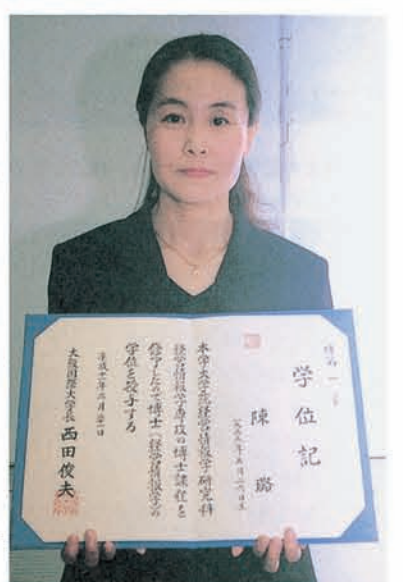 博第一号
学位記
陳璐
本学大学院経営情報学研究科
経営情報学専攻の博士課程を
修了したので博士(経営情報学)の
学位を授与する
大阪国際大学長 西田俊夫